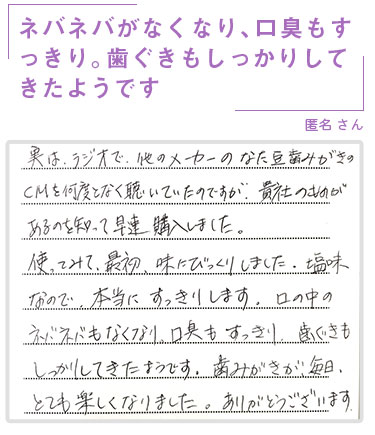 ネバネバがなくなり、口臭もす
っきり。歯ぐきもしっかりして
きたようです
匿名 さん
実は、ラジオで、他のメーカーの なた豆歯みがきの
CMを何度となく聴いていたのですが、貴社のものが
あるのを知って早速 購入しました。
使ってみて、最初、味にびっくりしました。塩味
なので、本当に すっきりします。口の中の
ネバネバもなくなり、口臭も すっきり、歯ぐきも
しっかりしてきたようです。歯みがきが、毎日、
とても楽しくなりました。ありがとうございます